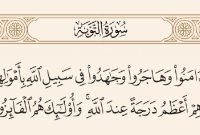 سُورَةُ التَّوْبَةِ
ءَامَنُوا۟ وَهَاجَرُوا۟ وَجَٰهَدُوا۟ فِى سَبِيلِ ٱللَّهِ بِأَمْوَٰلِهِ
هِمْ أَعْظَمُ دَرَجَةً عِندَ ٱللَّهِ ۚ وَأُو۟لَٰٓئِكَ هُمُ ٱلْفَآئِزُو